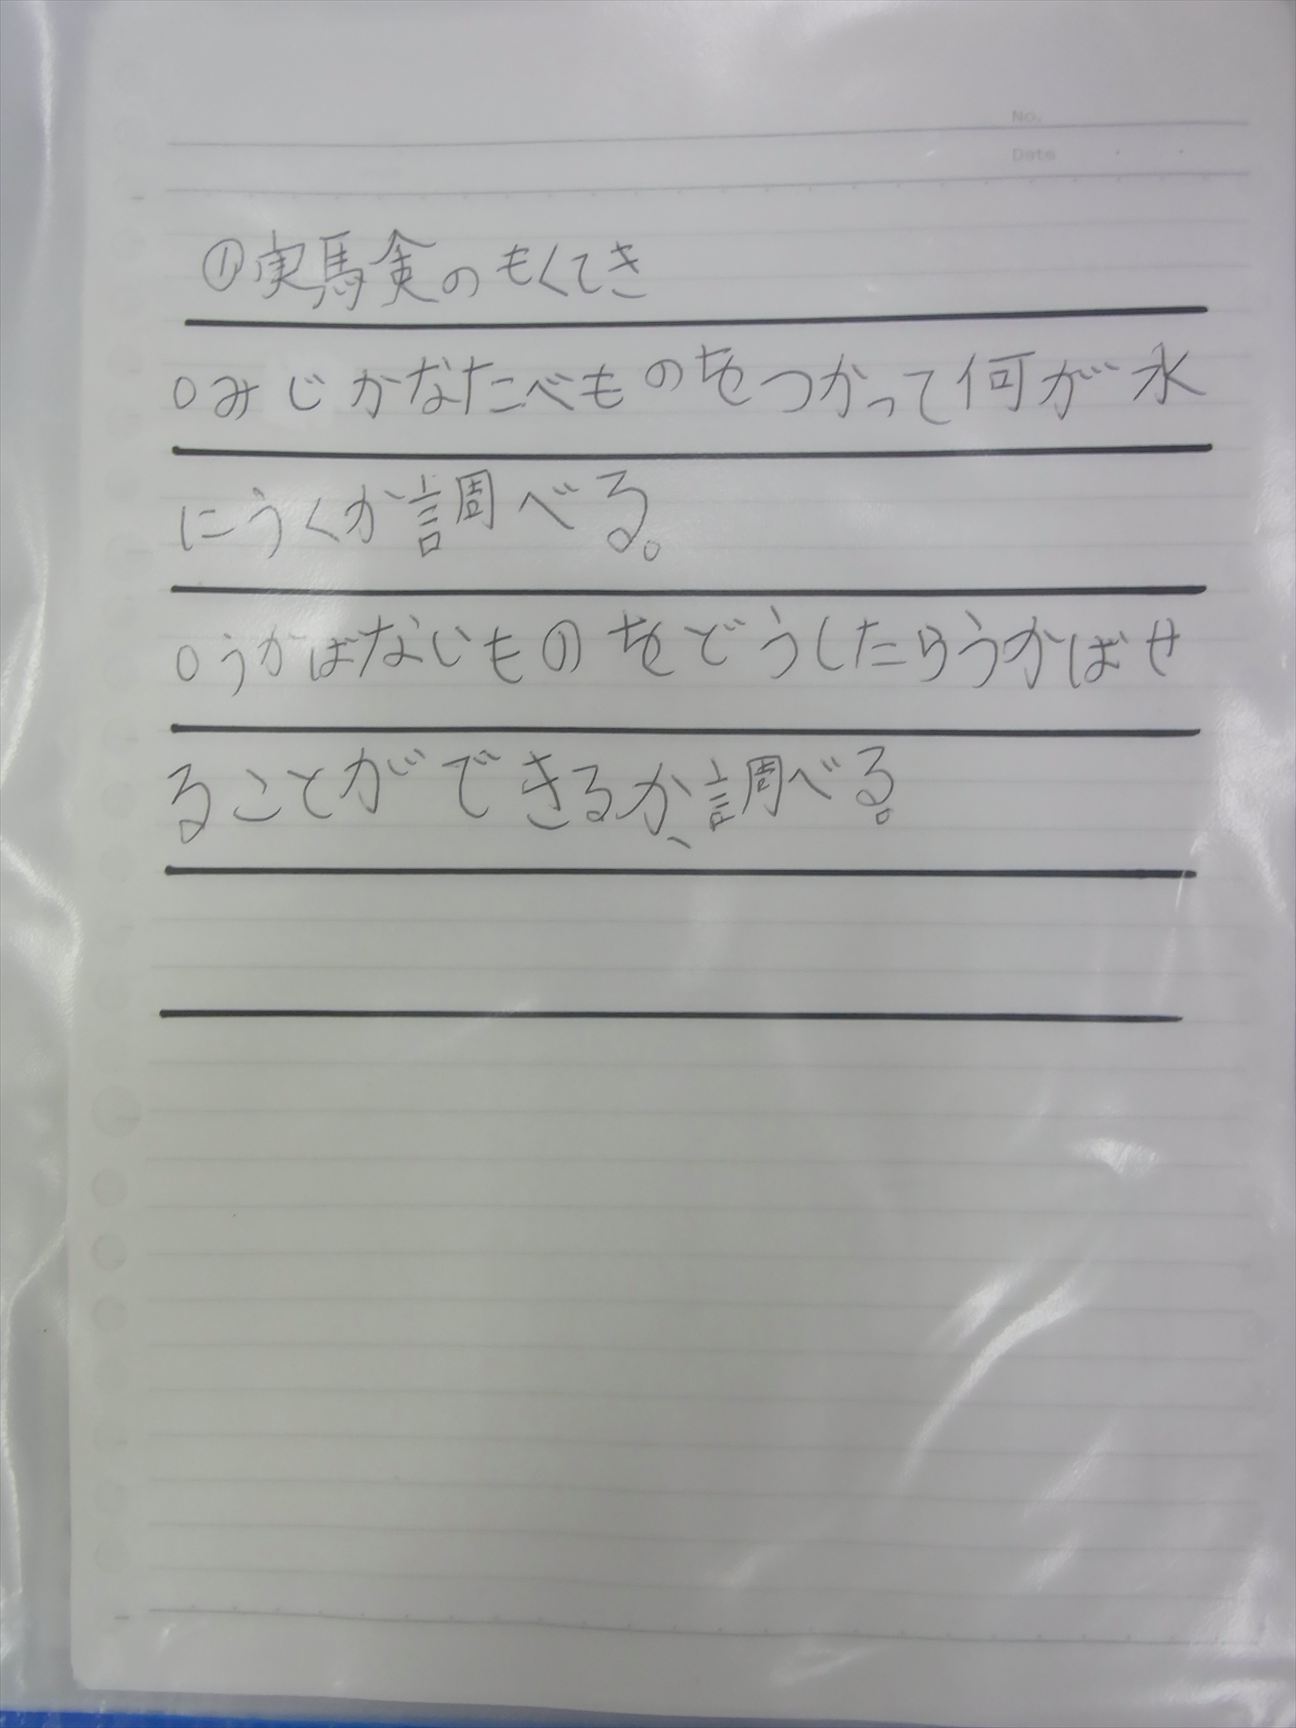 No.
Date
①実験のもくてき
○みじかなたべものをつかって何が水
にうくか調べる。
○うかばないものをどうしたらうかばせ
ることができるか、調べる。